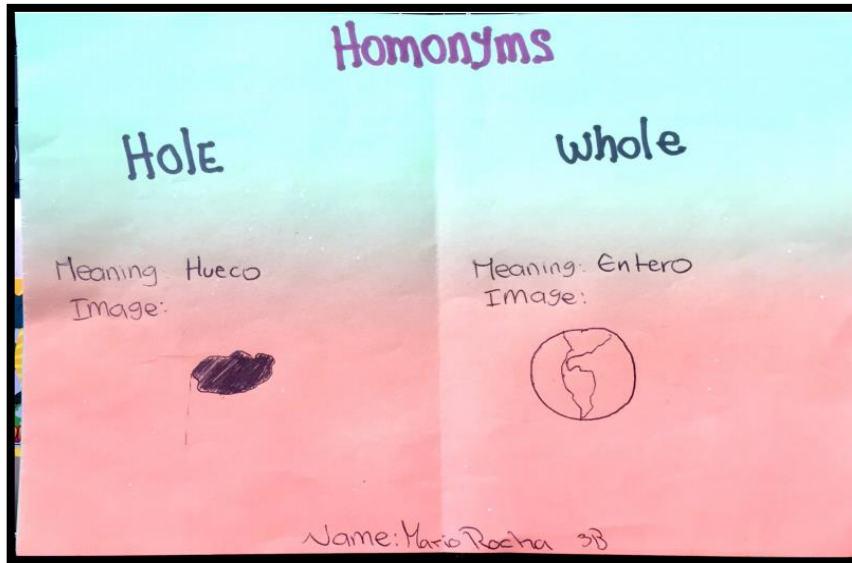 Homonyms
HolE
whole
Meaning: Hueco
Image:
Meaning: Entero
Image:
Name: Mario Rocha 3B